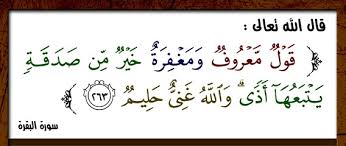 قال الله تعالى :
﴿ قَوْلٌ مَّعْرُوفٌ وَمَغْفِرَةٌ خَيْرٌ مِّن صَدَقَةٍ
يَتْبَعُهَآ أَذًى ۗ وَاللَّهُ غَنِىٌّ حَلِيمٌ ﴿٢٦٣﴾ ﴾
سورة البقرة